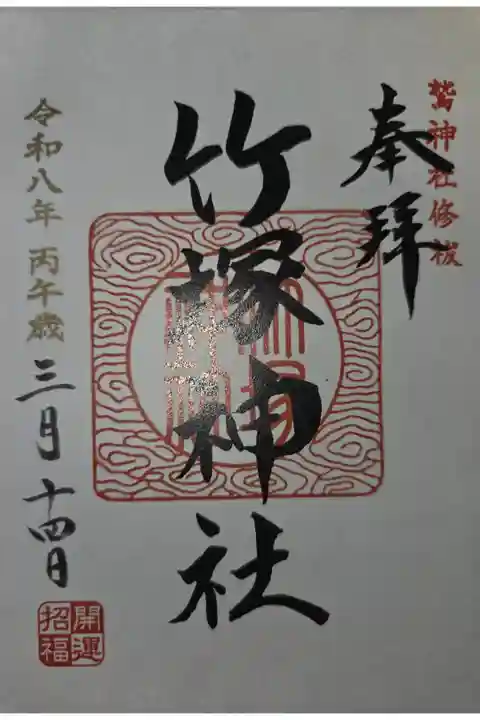 鷲神社修祓
奉拝
竹塚神社
竹塚
神社
令和八年 丙午歳
三月 十四日
開運
招福